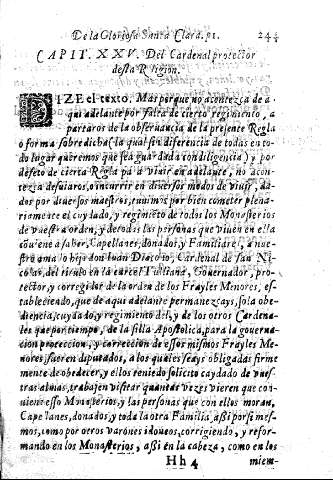 De la Gloriosa Santa Clara. pt. 244
CAPIT. XXV. Del Cardenal protector
desta Religion.
DIZE el texto. Mas porque no acontezca de a
qui adelante por falta de cierto regimiento, a
partaros de la obseruancia de la presente Regla
o forma sobredicha (la qual sin diferencia de todas en to-
do lugar queremos que sea guardada con diligencia), y por
defeto de cierta Regla para viuir en adelante, no acon
tezca desuiaros, o incurrir en diuersos modos de viuir, da-
dos por diuersos maestros, tuuimos por bien cometer plena-
riamente el cuydado, y regimiēto de todos los Monasterios
de vuestra orden, y de todas las personas que viuen en ella
cōuiene a saber, Capellanes, donados, y Familiares, a nues-
tro amado hijo don Iuan Diacono, Cardenal de san Ni
colas del titulo en la carcel Tuliana, Gouernador, protec-
tor, y corregidor de la orden de los Frayles Menores, es-
tableciendo, que de aqui adelante permanezcays, so la obe-
diencia, cuydado y regimiento del, y de los otros Cardena-
les que por tiempo, de la silla Apostolica, para la gouerna-
cion proteccion, y correccion de essos mismos Frayles Me-
nores fueren diputados, a los quales seays obligadas firme
mente de obedecer, y ellos teniendo solicito cuydado de vues-
tras almas, trabajen visitar quantas vezes vieren que con-
uiene esso Monasterios, y las personas que con ellos moran,
Capellanes, donados y toda la otra Familia, assi por si mes-
mos, como por otros varones idoneos, corrigiendo, y refor-
mando en los Monasterios, assi en la cabeza, como en los
Hh 4 miem-